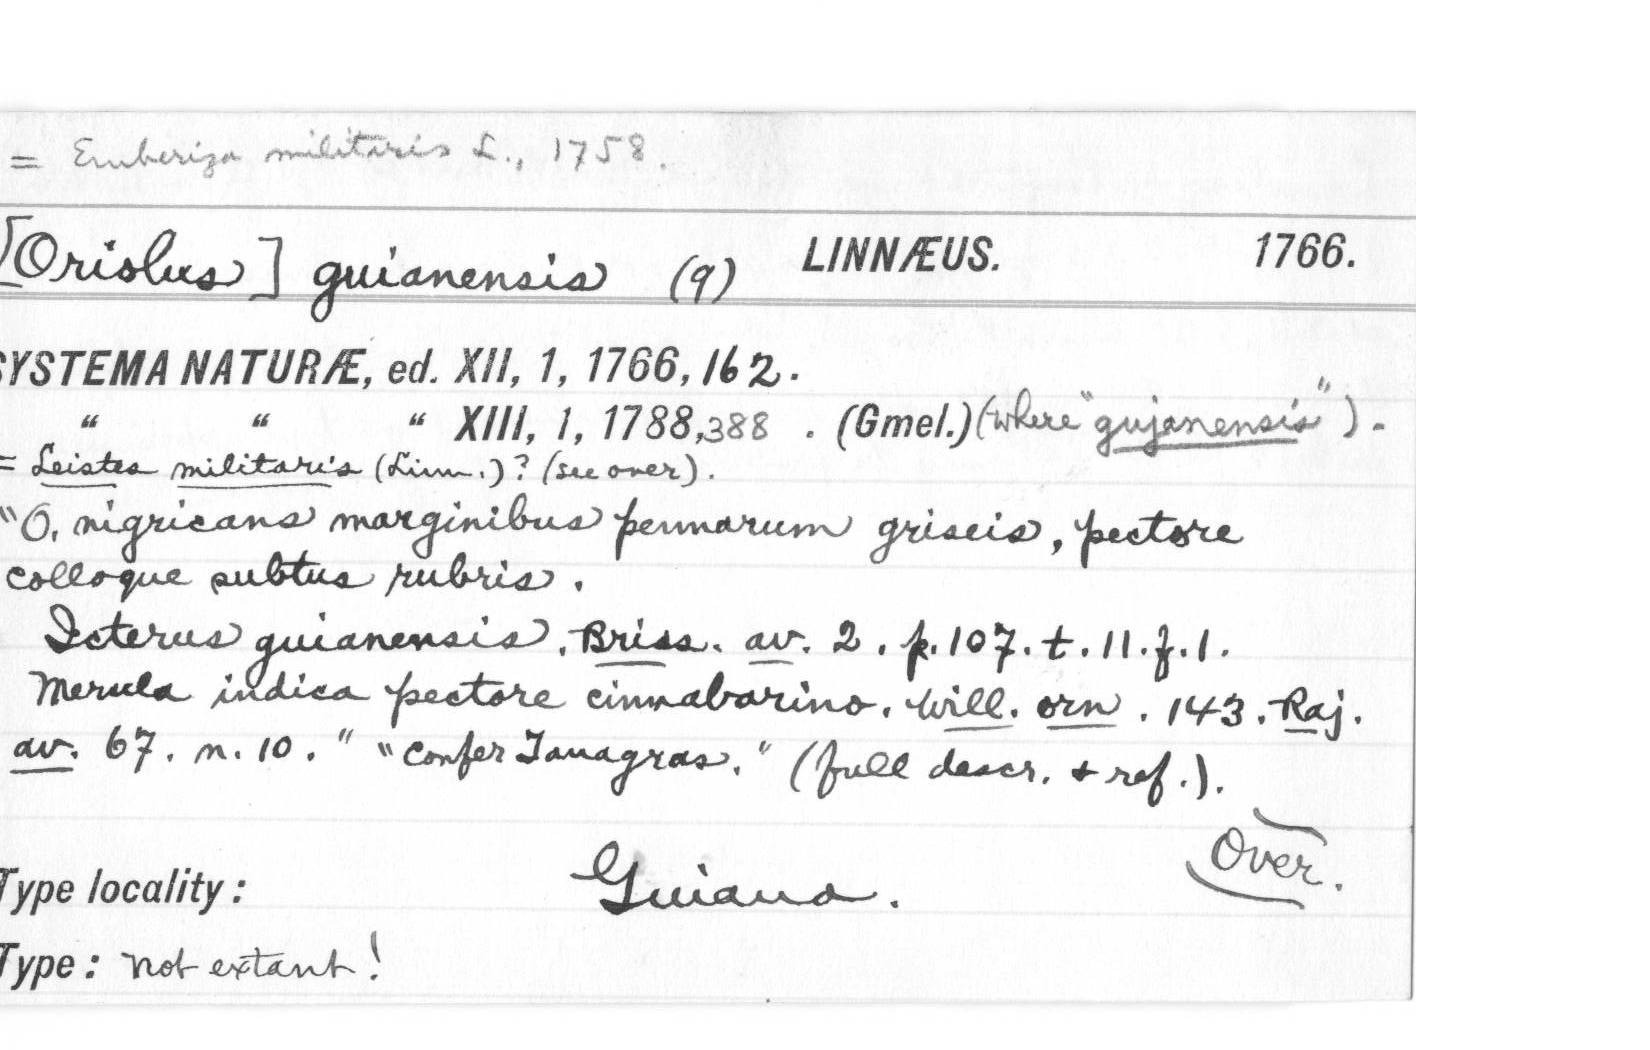 = Emberiza militaris L., 1758.
[Oriolus] guianensis (9) LINNÆUS. 1766.
SYSTEMA NATURÆ, ed. XII, 1, 1766, 162.
" " " XIII, 1, 1788, 388 . (Gmel.) (where "gujanensis").
= Leistes militaris (Linn.)? (see over).
"O. nigricans marginibus pennarum griseis, pectore
colloque subtus rubris.
Icterus guianensis. Briss. av. 2. p. 107. t. 11. f. 1.
Merula indica pectore cinnabarino. Will. orn. 143. Raj.
av. 67. n. 10." "Confer Tanagras." (full descr. & ref.).
Over.
Type locality: Guiana.
Type: not extant!